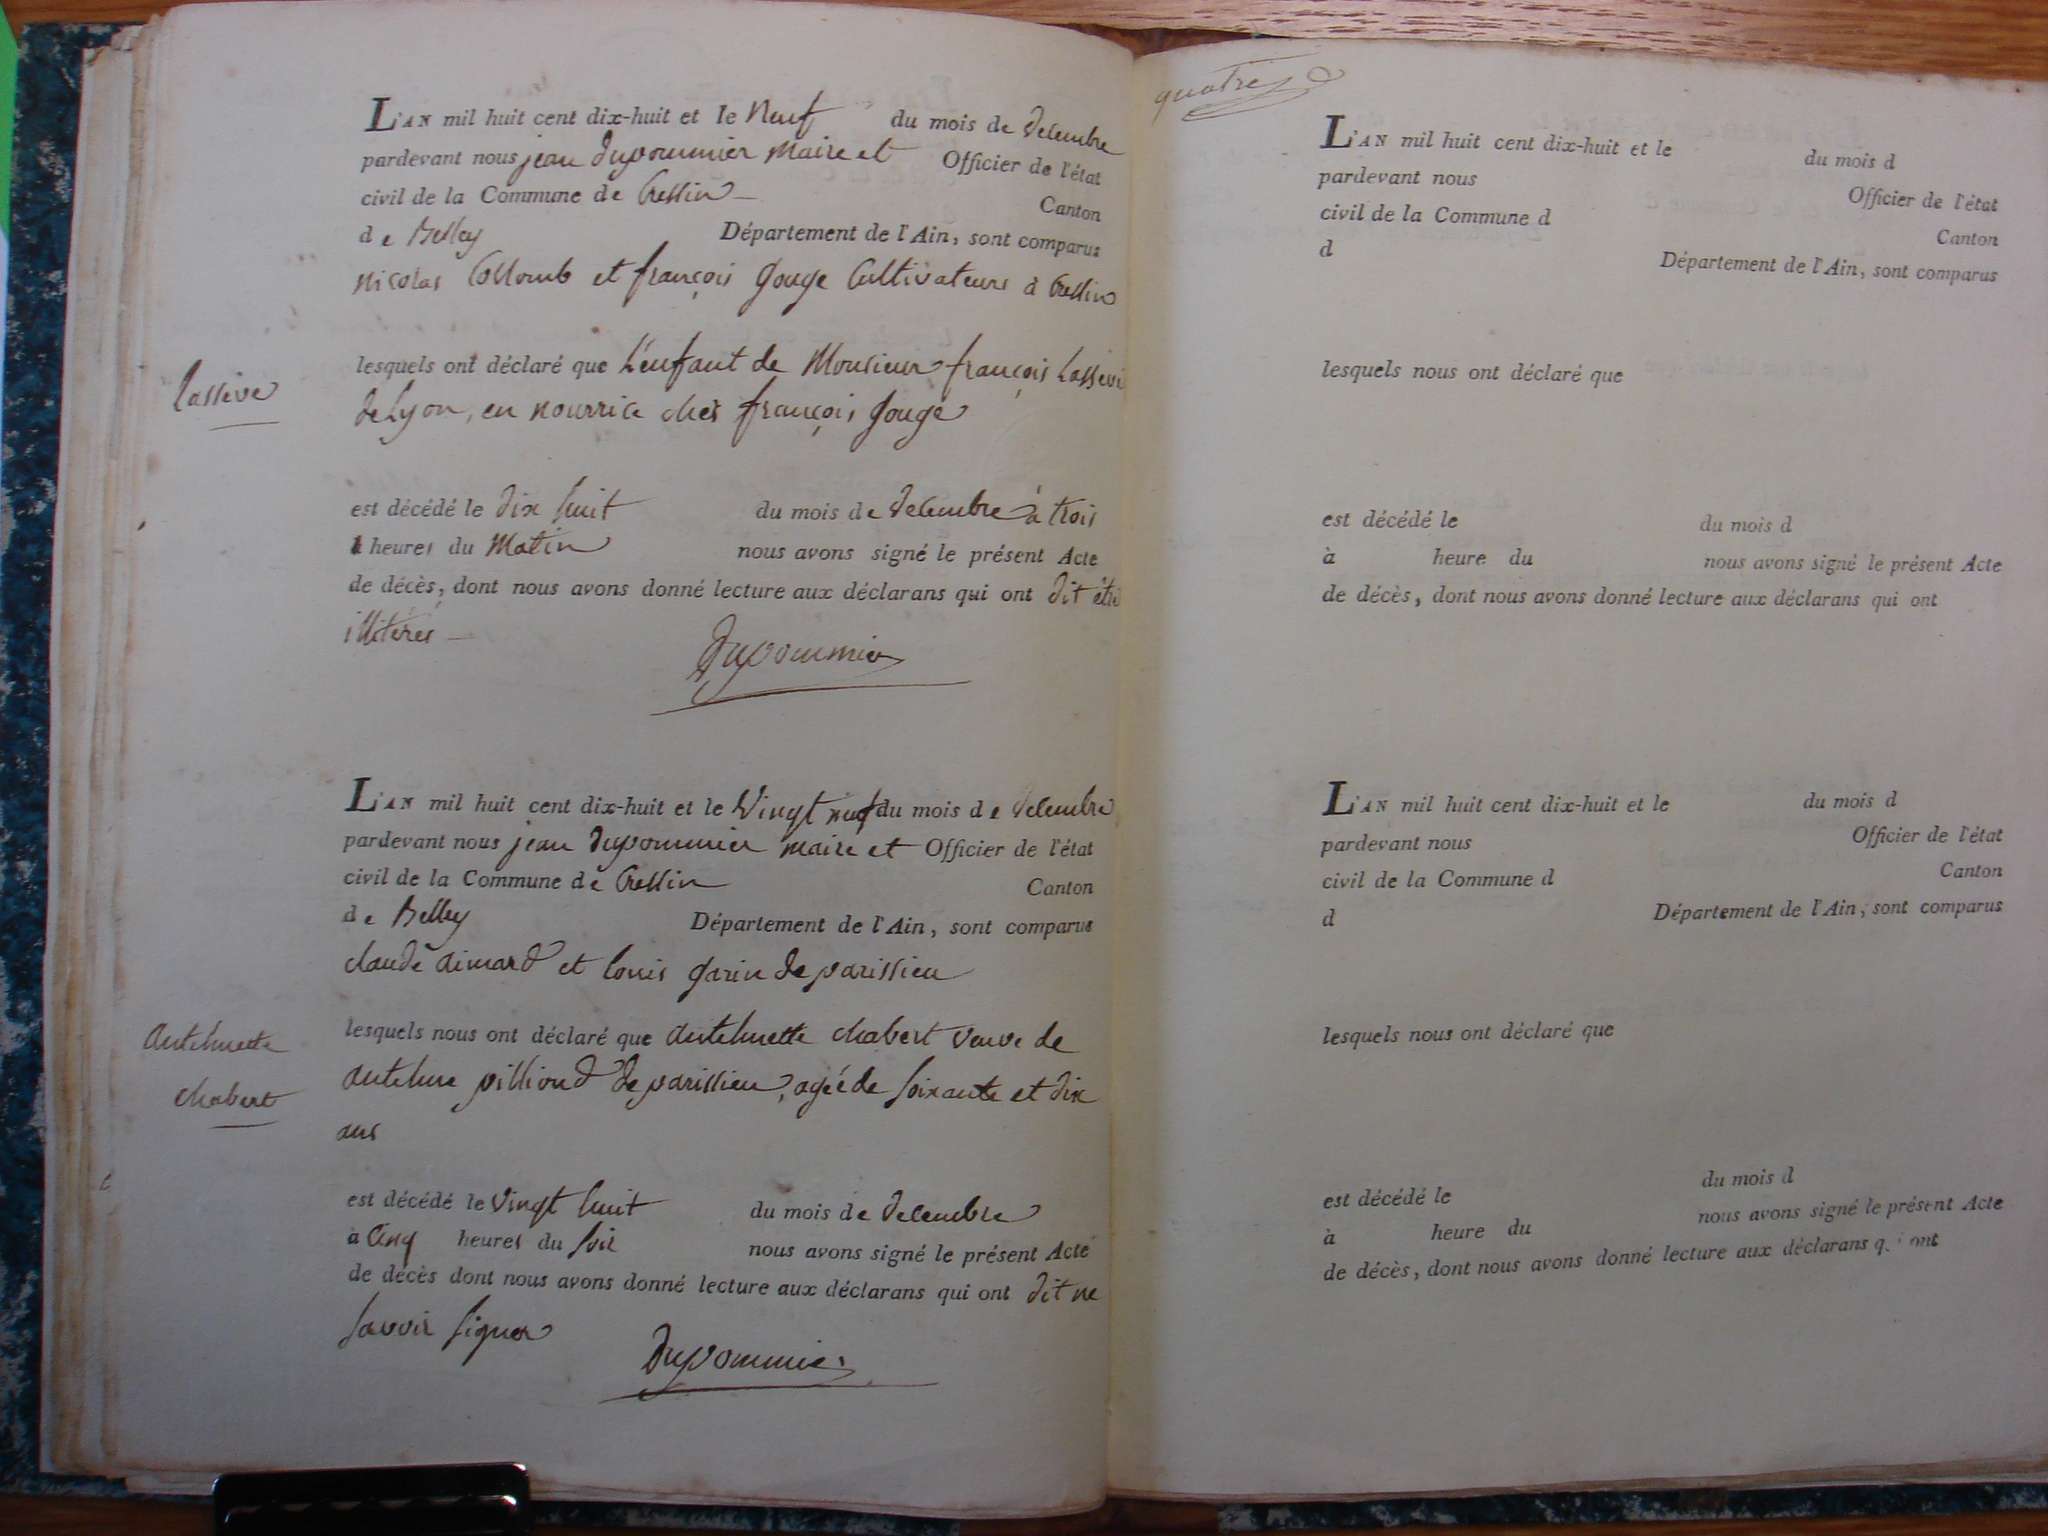 L'AN mil huit cent dix-huit et le neuf du mois de decembre
pardevant nous jean dupommier maire et Officier de l'état
civil de la Commune de Cressin Canton
de Belley Département de l'Ain, sont comparus
nicolas Collomb et françois gouge Cultivateurs a Cressin
Lasseve
lesquels ont déclaré que L'enfant de Monsieur françois Lasseve
de Lyon, en nourrice chés françois gouge
est décédé le dix huit du mois de decembre à trois
heures du Matin nous avons signé le présent Acte
de décès, dont nous avons donné lecture aux déclarans qui ont dit être
illitérés
Dupommier
L'AN mil huit cent dix-huit et le Vingt neuf du mois de decembre
pardevant nous jean dupommier maire et Officier de l'état
civil de la Commune de Cressin Canton
de Belley Département de l'Ain, sont comparus
claude aimard et louis garin de parissieu
antelmette
chabert
lesquels nous ont déclaré que antelmette chabert veuve de
antelme pilliond de parissieu, agée de soixante et dix
ans
est décédé le vingt huit du mois de decembre
à Cinq heures du soir nous avons signé le présent Acte
de décès dont nous avons donné lecture aux déclarans qui ont dit ne
savoir signer
Dupommier
L'AN mil huit cent dix-huit et le du mois d
pardevant nous Officier de l'état
civil de la Commune d Canton
d Département de l'Ain, sont comparus
lesquels nous ont déclaré que
est décédé le du mois d
à heure du nous avons signé le présent Acte
de décès, dont nous avons donné lecture aux déclarans qui ont
L'AN mil huit cent dix-huit et le du mois d
pardevant nous Officier de l'état
civil de la Commune d Canton
d Département de l'Ain, sont comparus
lesquels nous ont déclaré que
est décédé le du mois d
à heure du nous avons signé le présent Acte
de décès, dont nous avons donné lecture aux déclarans qui ont